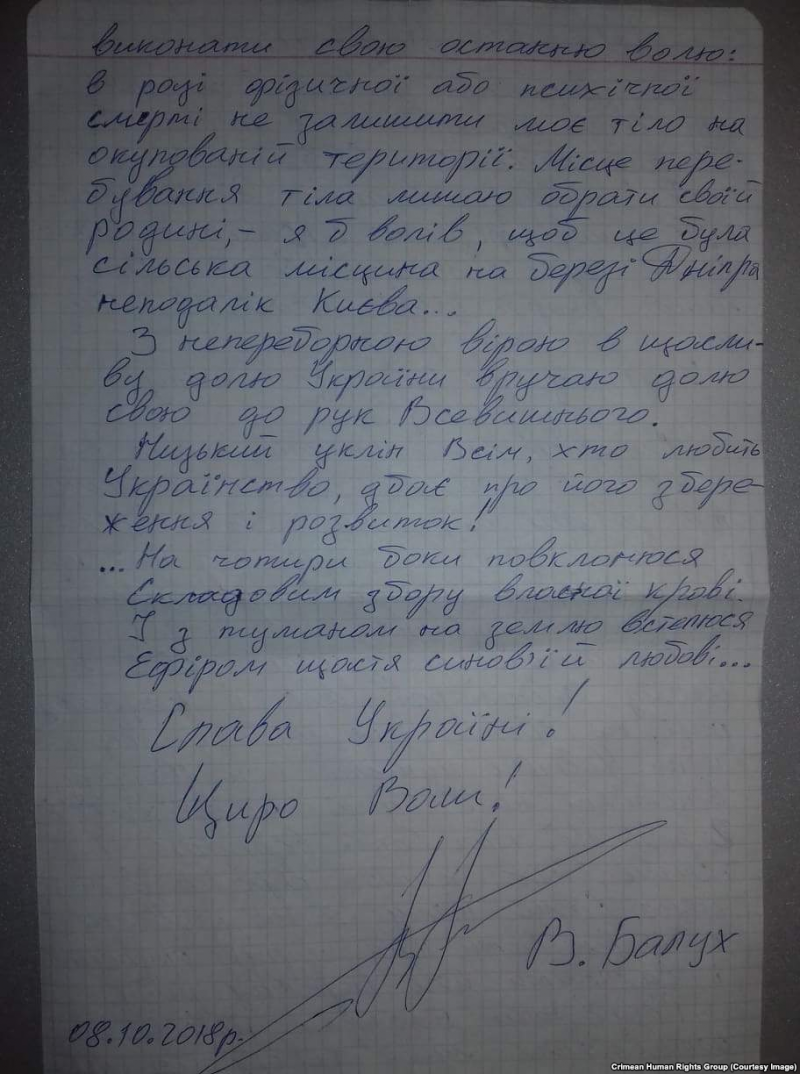 виконати свою останню волю:
в разі фізичної або психічної
смерті не залишити моє тіло на
окупованій території. Місце пере-
бування тіла лишаю обрати своїй
родині, – я б волів, щоб це була
сільська місцина на березі Дніпра
неподалік Києва...
З непереборною вірою в щасли-
ву долю України вручаю долю
свою до рук Всевишнього.
Низький уклін Всім, хто любить
Українство, дбає про його збере-
ження і розвиток!
...На чотири боки повклонюся
Складовим збору власної крові.
І з туманом на землю встелюся
Ефіром щастя синов'їй любові...
Слава Україні!
Щиро Ваш!
В. Балух
08.10.2018р.
Crimean Human Rights Group (Courtesy Image)